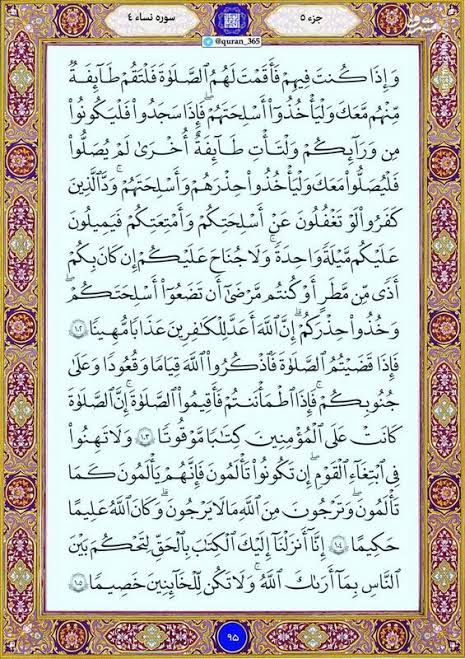 جزء ۵
سوره نساء ۴
@quran_365
وَإِذَا كُنتَ فِيهِمْ فَأَقَمْتَ لَهُمُ ٱلصَّلَوٰةَ فَلْتَقُمْ طَآئِفَةٌ
مِّنْهُم مَّعَكَ وَلْيَأْخُذُوٓا۟ أَسْلِحَتَهُمْ ۖ فَإِذَا سَجَدُوا۟ فَلْيَكُونُوا۟
مِن وَرَآئِكُمْ وَلْتَأْتِ طَآئِفَةٌ أُخْرَىٰ لَمْ يُصَلُّوا۟
فَلْيُصَلُّوا۟ مَعَكَ وَلْيَأْخُذُوا۟ حِذْرَهُمْ وَأَسْلِحَتَهُمْ ۗ وَدَّ ٱلَّذِينَ
كَفَرُوا۟ لَوْ تَغْفُلُونَ عَنْ أَسْلِحَتِكُمْ وَأَمْتِعَتِكُمْ فَيَمِيلُونَ
عَلَيْكُم مَّيْلَةً وَٰحِدَةً ۚ وَلَا جُنَاحَ عَلَيْكُمْ إِن كَانَ بِكُمْ
أَذًى مِّن مَّطَرٍ أَوْ كُنتُم مَّرْضَىٰٓ أَن تَضَعُوٓا۟ أَسْلِحَتَكُمْ ۖ
وَخُذُوا۟ حِذْرَكُمْ ۗ إِنَّ ٱللَّهَ أَعَدَّ لِلْكَٰفِرِينَ عَذَابًا مُّهِينًا ۱۰۲
فَإِذَا قَضَيْتُمُ ٱلصَّلَوٰةَ فَٱذْكُرُوا۟ ٱللَّهَ قِيَٰمًا وَقُعُودًا وَعَلَىٰ
جُنُوبِكُمْ ۚ فَإِذَا ٱطْمَأْنَنتُمْ فَأَقِيمُوا۟ ٱلصَّلَوٰةَ ۚ إِنَّ ٱلصَّلَوٰةَ
كَانَتْ عَلَى ٱلْمُؤْمِنِينَ كِتَٰبًا مَّوْقُوتًا ۱۰۳ وَلَا تَهِنُوا۟
فِى ٱبْتِغَآءِ ٱلْقَوْمِ ۖ إِن تَكُونُوا۟ تَأْلَمُونَ فَإِنَّهُمْ يَأْلَمُونَ كَمَا
تَأْلَمُونَ ۖ وَتَرْجُونَ مِنَ ٱللَّهِ مَا لَا يَرْجُونَ ۗ وَكَانَ ٱللَّهُ عَلِيمًا
حَكِيمًا ۱۰۴ إِنَّآ أَنزَلْنَآ إِلَيْكَ ٱلْكِتَٰبَ بِٱلْحَقِّ لِتَحْكُمَ بَيْنَ
ٱلنَّاسِ بِمَآ أَرَىٰكَ ٱللَّهُ ۚ وَلَا تَكُن لِّلْخَآئِنِينَ خَصِيمًا ۱۰۵
۹۵